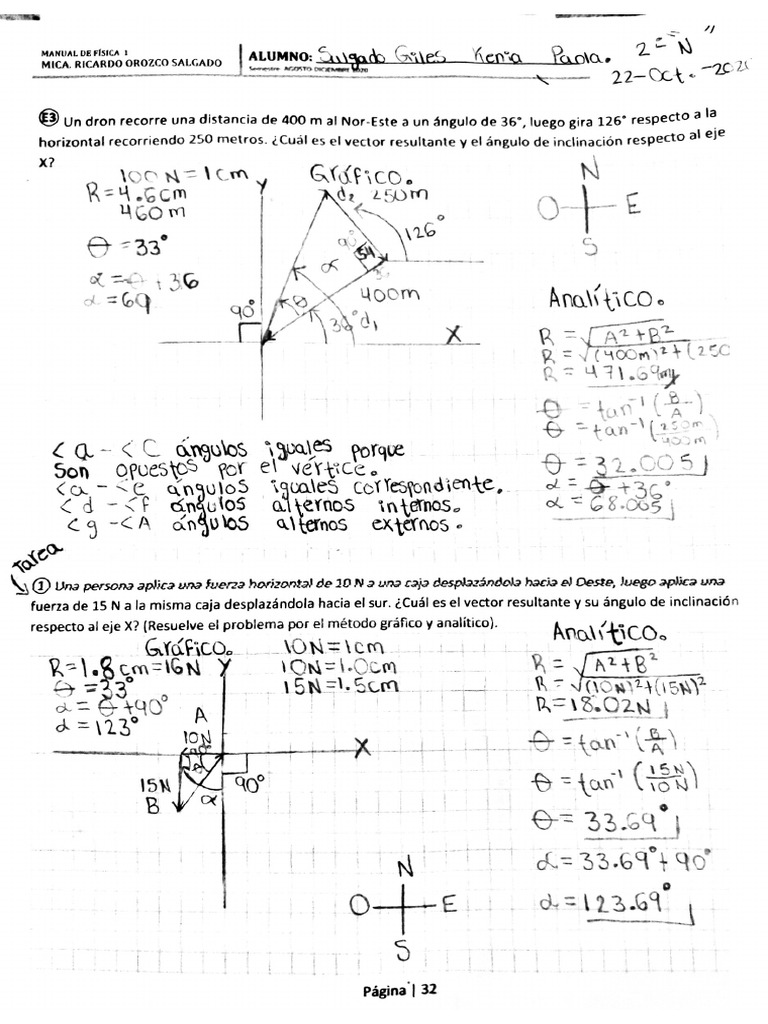 MANUAL DE FÍSICA 1
MICA. RICARDO OROZCO SALGADO
ALUMNO: Salgado Giles Kenia Paola. 2="N"
Semestre AGOSTO DICIEMBRE 2020
22-Oct.-2020
E3 Un dron recorre una distancia de 400 m al Nor-Este a un ángulo de 36°, luego gira 126° respecto a la
horizontal recorriendo 250 metros. ¿Cuál es el vector resultante y el ángulo de inclinación respecto al eje
X?
100N=1cm
R=4.6cm
460m
θ=33°
α=θ+36
α=69
Gráfico.
Y
d2 250m
126°
90°
54
α
400m
θ
36°
d1
90°
X
N
O
E
S
Analítico.
R=√A²+B²
R=√(400m)²+(250
R=471.69m
θ=tan⁻¹(B/A)
θ=tan⁻¹(250m/400m)
θ=32.005
α=θ+36°
α=68.005
<a-<C ángulos iguales porque
Son opuestos por el vértice.
<a-<e ángulos iguales correspondiente.
<d-<f ángulos alternos internos.
<g-<A ángulos alternos externos.
Tarea
1 Una persona aplica una fuerza horizontal de 10 N a una caja desplazándola hacia el Oeste, luego aplica una
fuerza de 15 N a la misma caja desplazándola hacia el sur. ¿Cuál es el vector resultante y su ángulo de inclinación
respecto al eje X? (Resuelve el problema por el método gráfico y analítico).
Gráfico.
R=1.8cm=16N
θ=33°
α=θ+90°
α=123°
10N=1cm
10N=1.0cm
15N=1.5cm
Y
A
10N
90°
X
θ
15N
B
α
90°
N
O
E
S
Analítico.
R=√A²+B²
R=√(10N)²+(15N)²
R=18.02N
θ=tan⁻¹(B/A)
θ=tan⁻¹(15N/10N)
θ=33.69°
α=33.69°+90°
α=123.69°
Página | 32